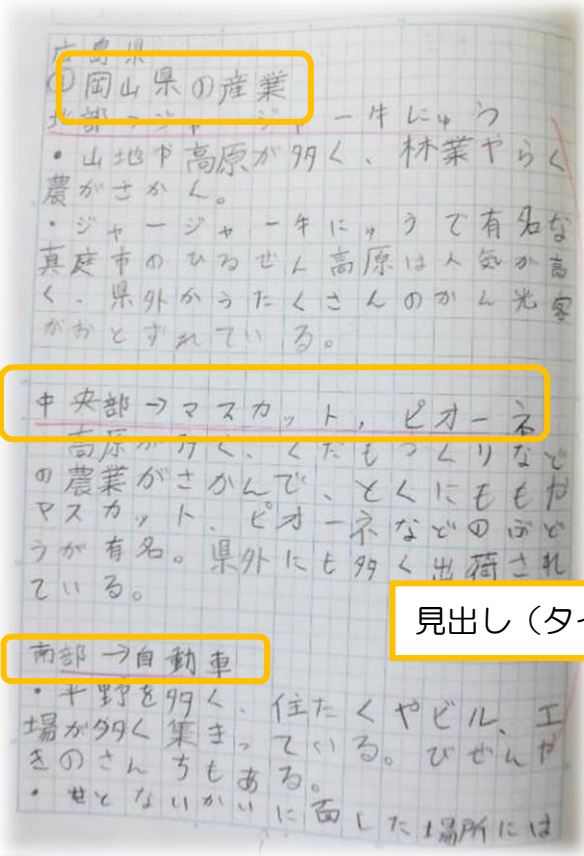 広島県
①岡山県の産業
北部→ジャージャー牛にゅう
・山地や高原が多く、林業やらく
農がさかん。
・ジャージャー牛にゅうで有名な
真庭市のひるぜん高原は人気が高
く、県外からたくさんのかん光客
がおとずれている。
中央部→マスカット，ピオーネ
高原が多く、くだもつくりなど
の農業がさかんで、とくにももや
マスカット、ピオーネなどのぶど
うが有名。県外にも多く出荷され
ている。
見出し（タイ
南部→自動車
・平野を多く、住たくやビル、工
場が多く集まっている。びぜんや
きのさんちもある。
・せとないかいに面した場所には